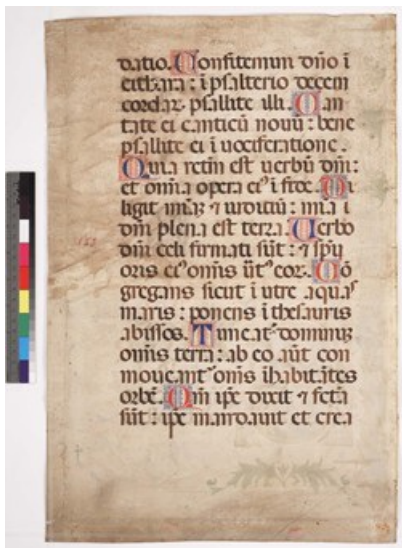 datio. Confitemini dño i
cithara: i psalterio decem
cordaꝝ psallite illi. Can
tate ei canticū nouū: bene
psallite ei i uociferatione.
Quia retm̄ est uerbū dm̄:
et om̄ia opera ei⁹ i fide. Di
ligit mīaꝫ ⁊ iudiciū: mīa i
dm̄ plena est terra. Uerbo
dm̄ celi firmati sūt: ⁊ spū
oris ei⁹ omīs ūt⁹ eoꝝ. Cō
gregans sicut i utre aquas
maris: ponens i thesauris
abissos. Timeat dominuꝫ
omīs terra: ab eo aūt con
moueant omīs ihabitātes
orbē. Qm̄ ipe dixit ⁊ fcta
sūt: ipe mandauit et crea